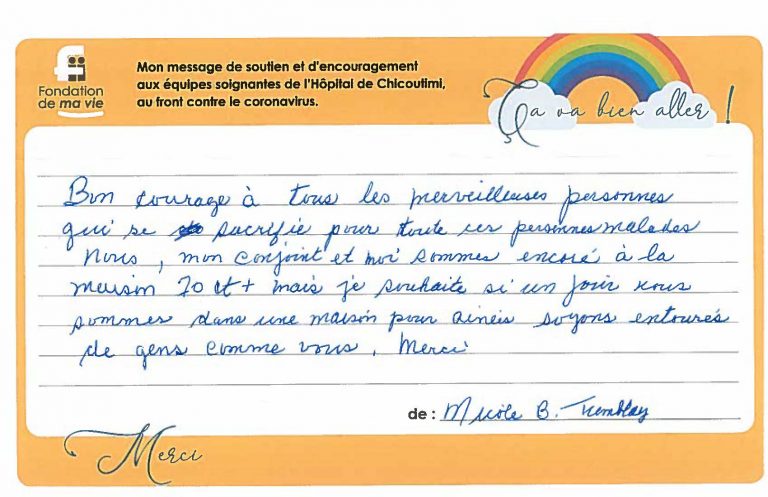 Fondation
de ma vie
Mon message de soutien et d'encouragement
aux équipes soignantes de l'Hôpital de Chicoutimi,
au front contre le coronavirus.
Ça va bien aller !
Bon courage à tous les merveilleuses personnes
qui se sacrifie pour toute ces personnes malades
Nous, mon conjoint et moi sommes encore à la
maison 70 et + mais je souhaite si un jour nous
sommes dans une maison pour ainés soyons entourés
de gens comme vous. Merci
de : Nicole B. Tremblay
Merci